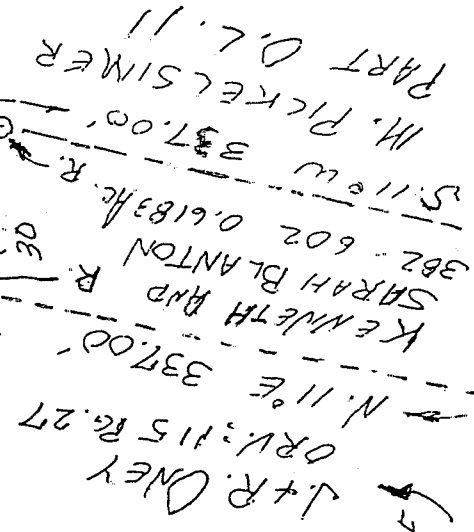 J. & R. ONEY
ORV: 115 PG. 27
N. 11° E 337.00'
KENNETH AND R
SARAH BLANTON
382 - 602 0.6183 Ac. R.
S. 11° W 337.00'
M. PICKELSIMER
PART O.L. 11